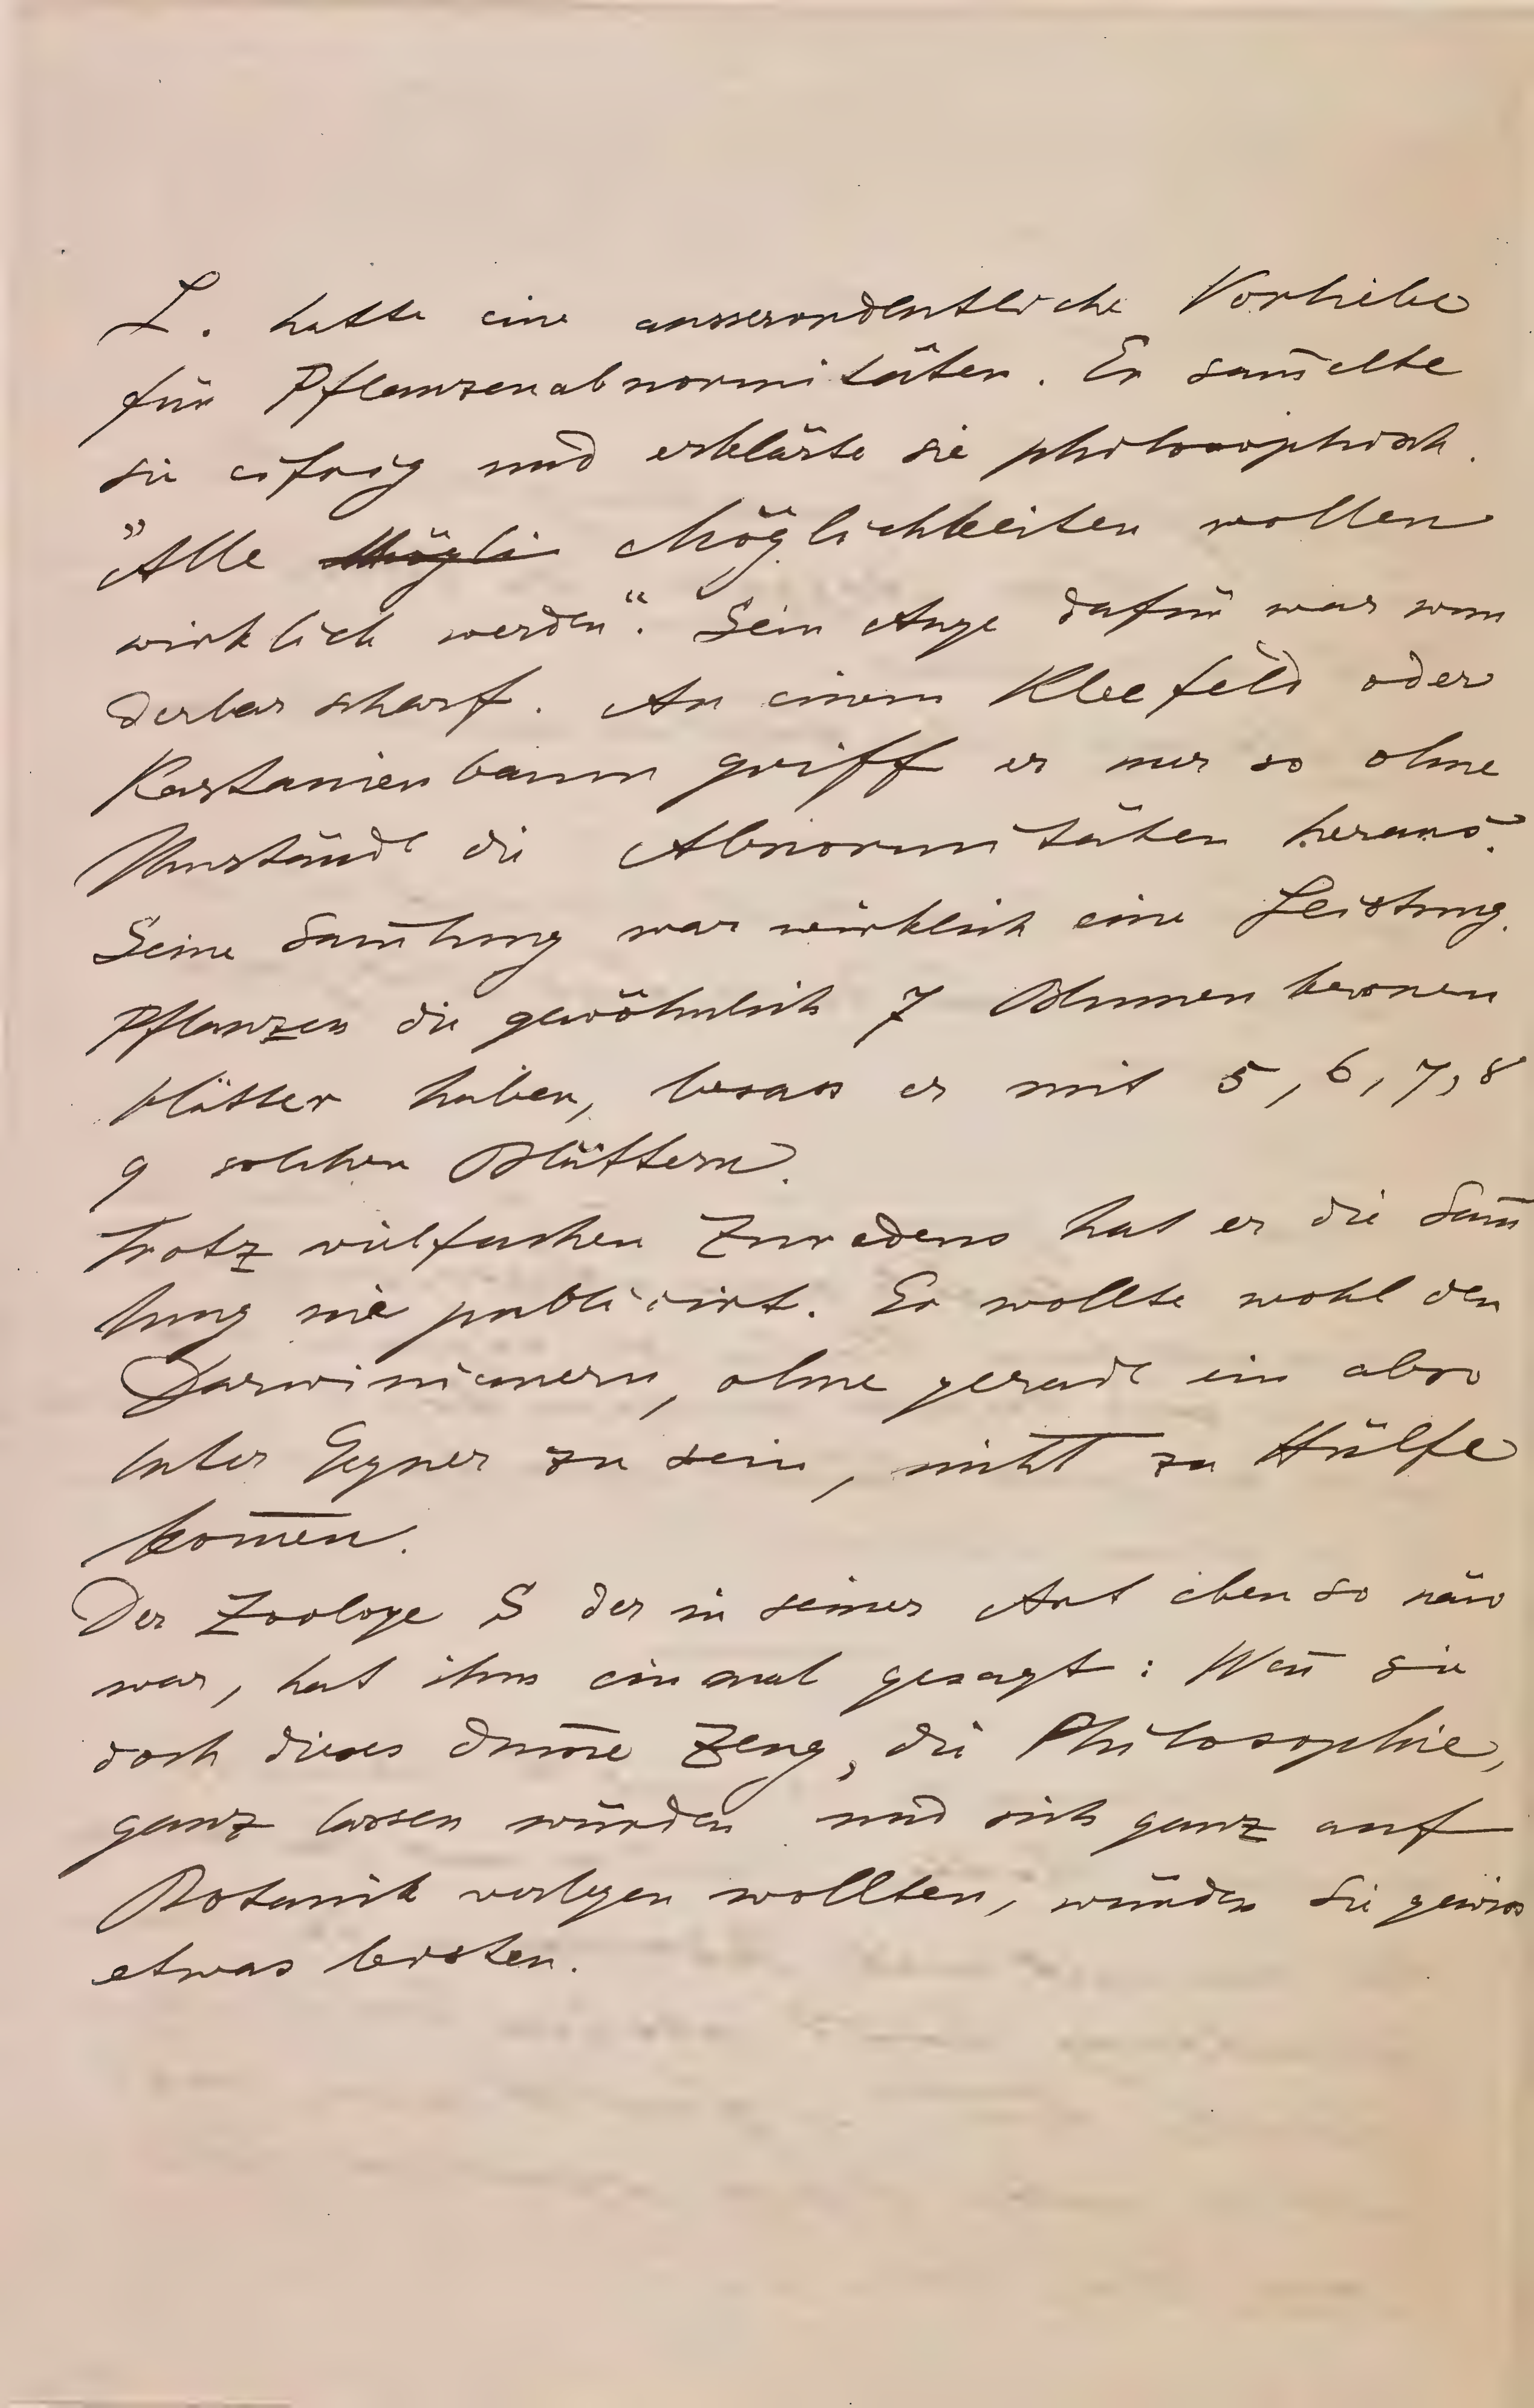 L. hatte eine ausserordentliche Vorliebe
für Pflanzenabnormitäten. Er sam̄elte
sie eifrig und erklärte sie philosophisch.
"Alle Mögli Möglichkeiten wollen
wirklich werden“. Sein Auge dafür war wun
derbar scharf. An einem Kleefeld oder
Kastanienbaum griff er nur so ohne
Umstände die Abnormitäten heraus.
Seine Sam̄lung war wirklich eine Leistung.
Pflanzen die gewöhnlich 7 Blumenkronen
blätter haben, besass er mit 5, 6, 7, 8
9 solchen Blättern.
Trotz vielfachen Zuredens hat er die Sam̄
lung nie publicirt. Er wollte wohl den
Darwinianern, ohne gerade ein abso
luter Gegner zu sein, nicht zu Hülfe
kom̄en.
Der Zoologe S der in seiner Art eben so naiv
war, hat ihm einmal gesagt: Wen̄ sie
doch dieses dum̄e Zeug, die Philosophie,
ganz lassen würden und sich ganz auf
Botanik verlegen wollten, würden Sie gewiss
etwas leisten.